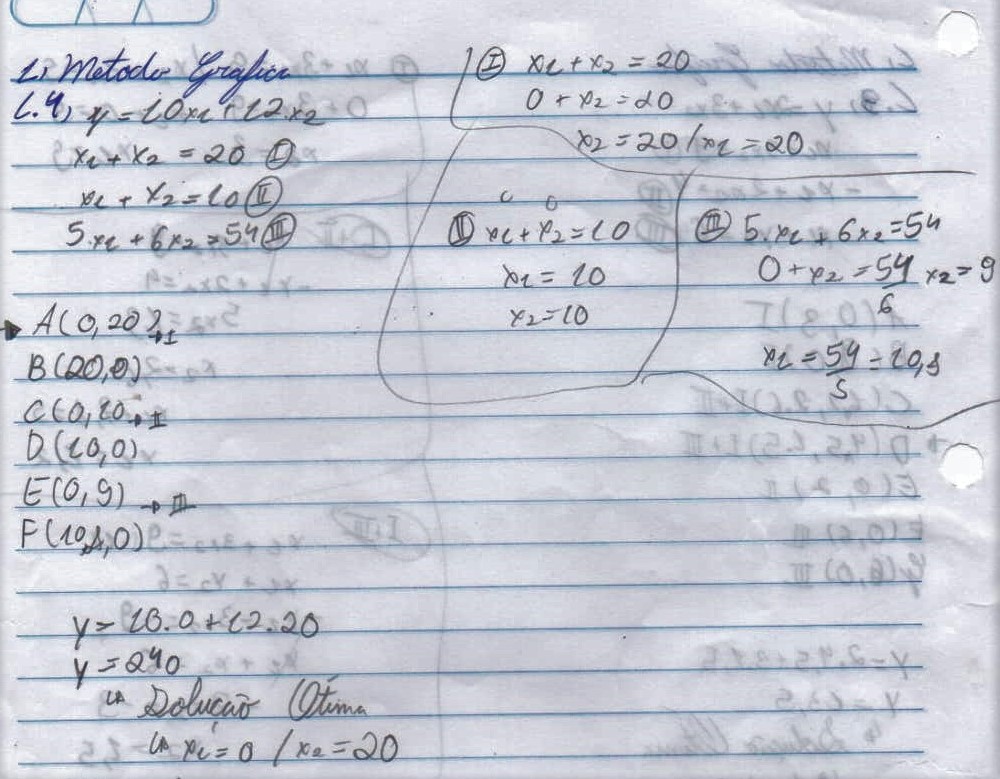 1) Metodo Grafico
1.4) y = 10x1 + 12x2
x1 + x2 = 20 (I)
x1 + x2 = 10 (II)
5.x1 + 6x2 = 54 (III)
A(0,20) → I
B(20,0)
C(0,10 → II
D(10,0)
E(0,9) → III
F(10,8,0)
y = 10.0 + 12.20
y = 240
↳ Solução Ótima
↳ x1 = 0 / x2 = 20
(I) x1 + x2 = 20
0 + x2 = 20
x2 = 20 / x1 = 20
(II) x1 + x2 = 10
x1 = 10
x2 = 10
(III) 5.x1 + 6x2 = 54
0 + x2 = 54/6 x2 = 9
x1 = 54/5 = 10,8